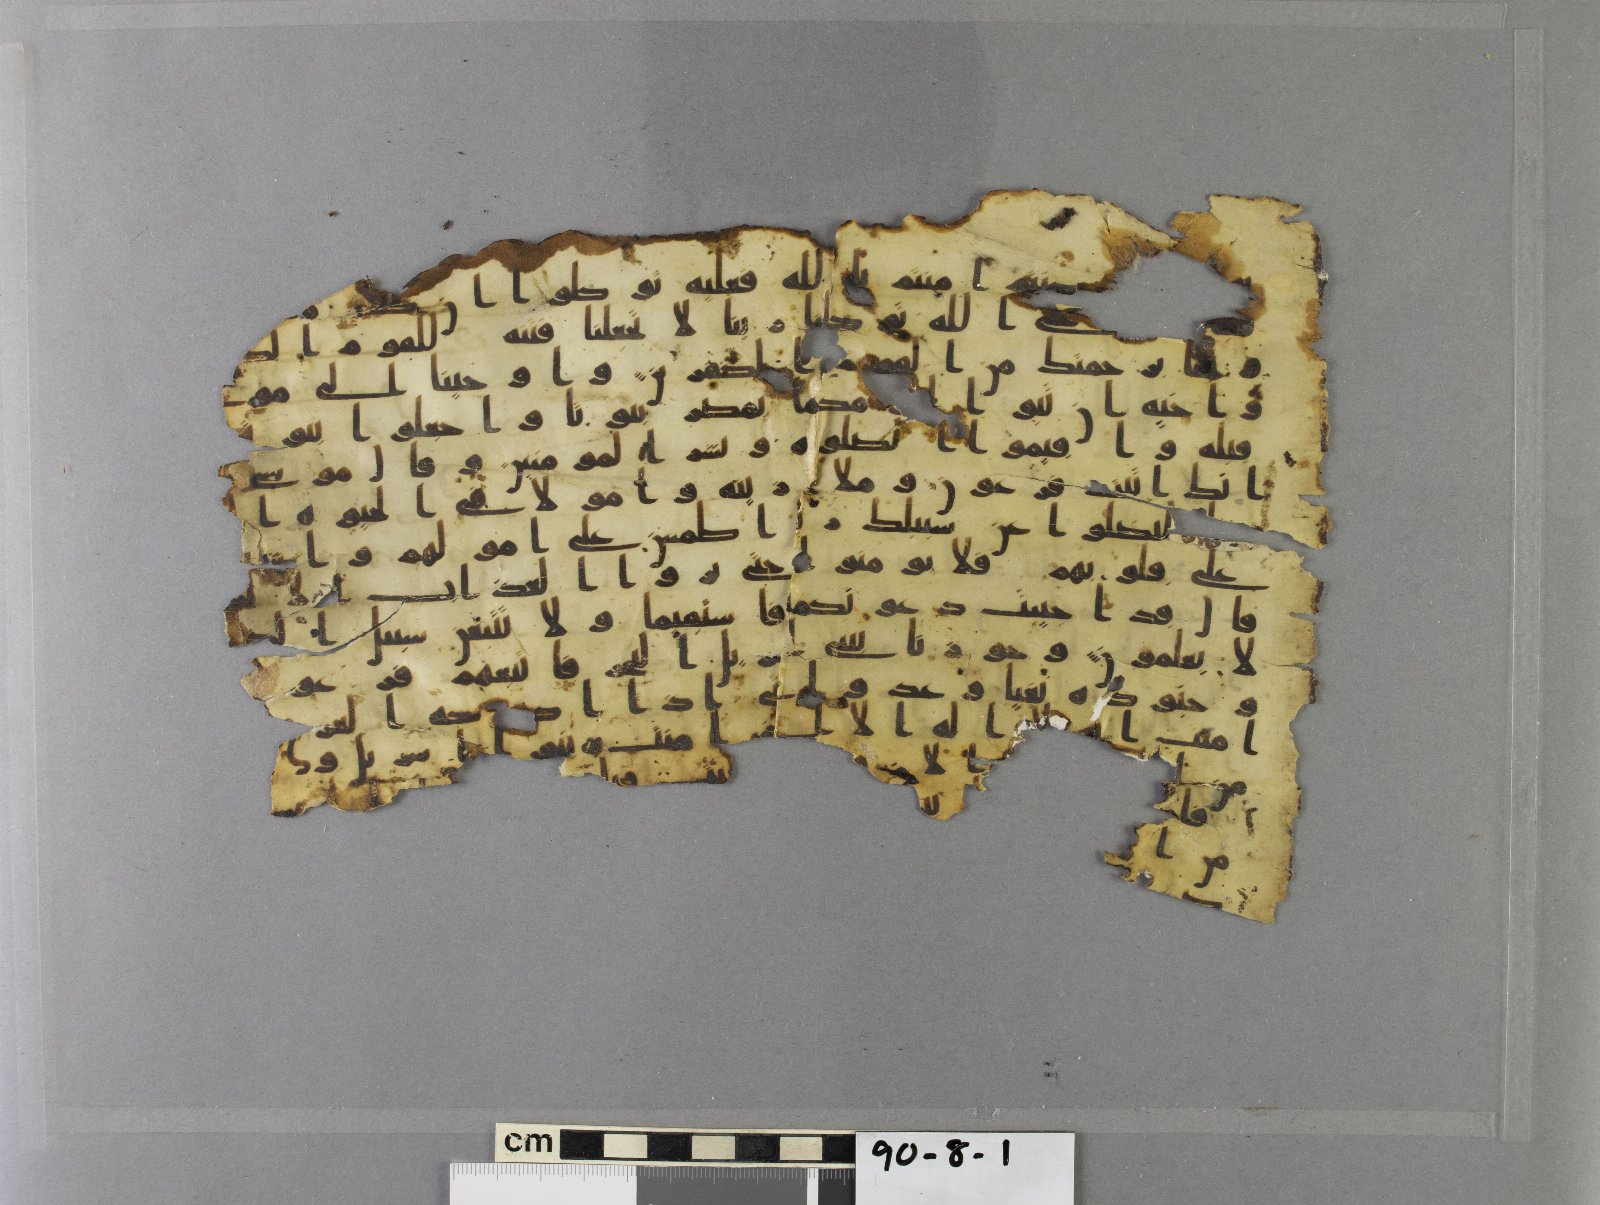 كنتم امنتم بالله فعليه توكلوا ا
على الله توكلنا ربنا لا تجعلنا فتنه للقوم الظ
و نجنا برحمتك من القوم الكفرين واوحينا الى موسى
واخيه ان تبوا لقومكما بمصر بيوتا واجعلوا بيو
قبله واقيموا الصلوه وبشر المومنين وقال موسى
انك اتيت فرعون وملاه زينه وامولا في الحيوه ا
ليضلوا عن سبيلك ربنا اطمس على امولهم وا
على قلوبهم فلا يومنوا حتى يروا العذاب الا
قال قد اجيبت دعوتكما فاستقيما ولا تتبعن سبيل الذ
لا يعلمون وجوزنا ببني اسريل البحر فاتبعهم فرعو
وجنوده بغيا وعدوا حتى اذا ادركه الغر
امنت انه لا اله الا الذي امنت به بنوا اسريل و
من ا
فا
من ا